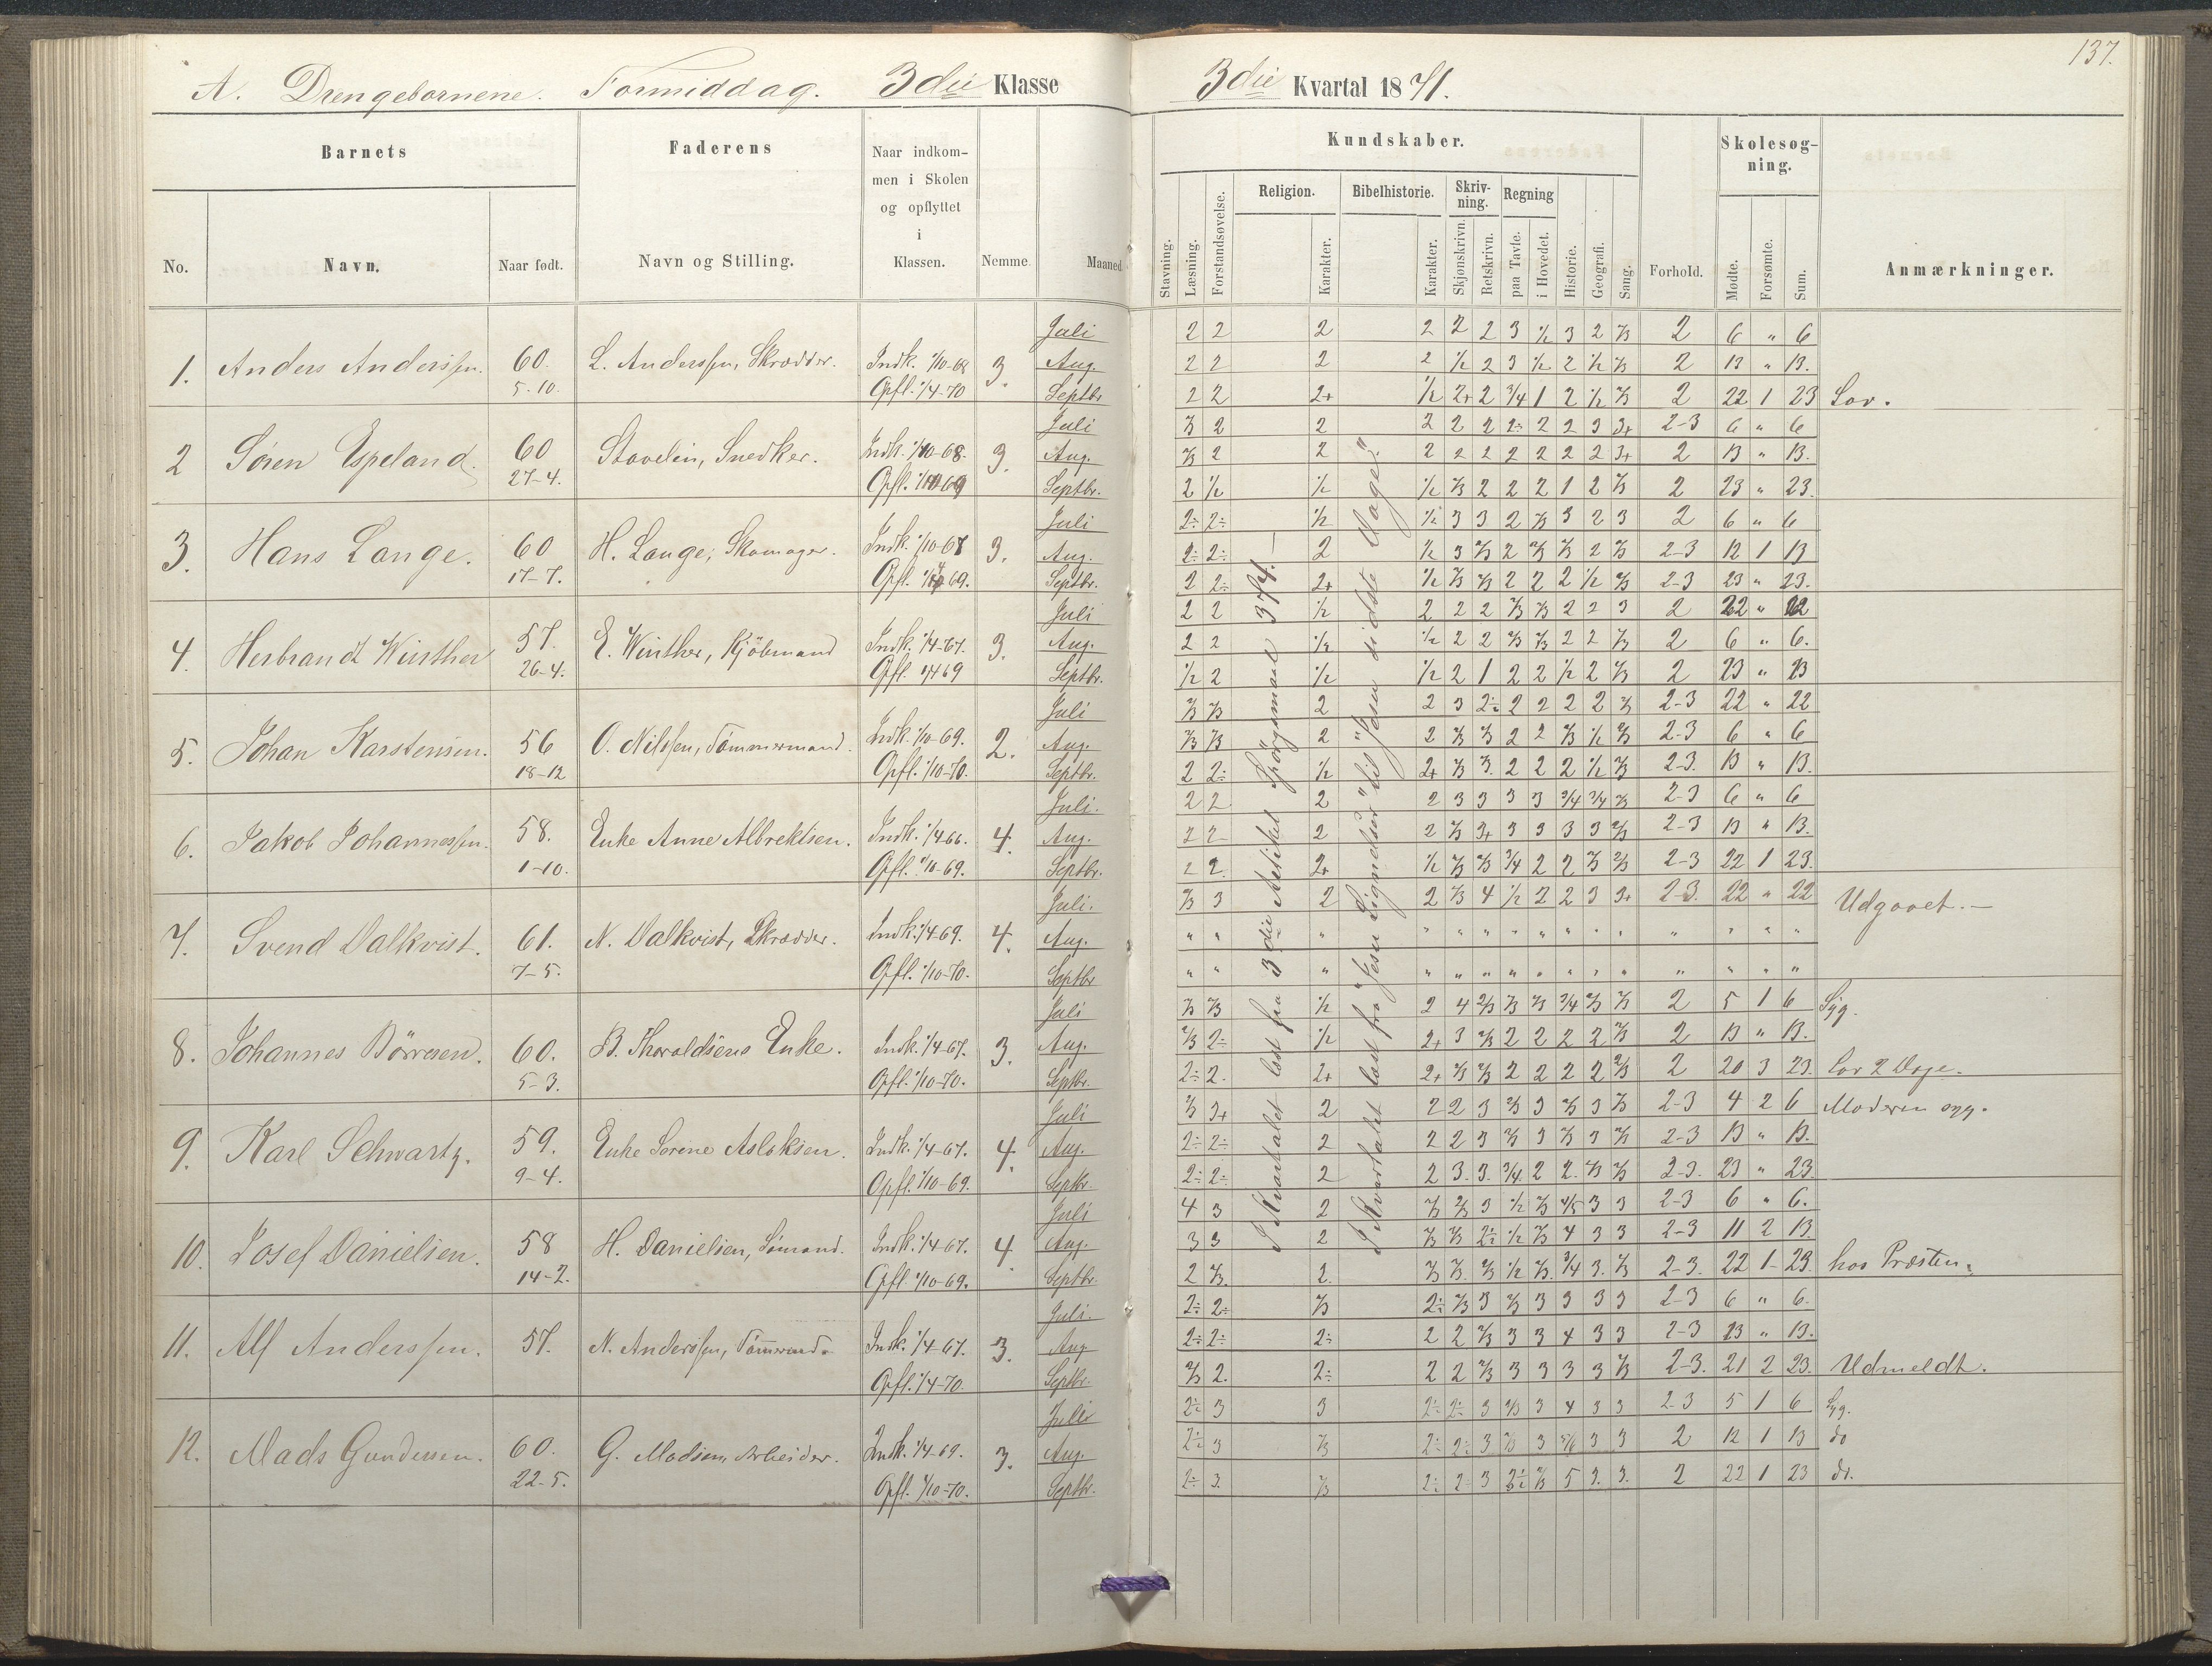 137.
A. Drengebørnene. Formiddag. 3die Klasse
3die Kvartal 1871.
Barnets
Faderens
Naar indkom-
men i Skolen
og opflyttet
i
Klassen.
No.
Navn.
Naar født.
Navn og Stilling.
Nemme.
Maaned
Kundskaber.
Stavning.
Læsning.
Forstandsøvelse.
Religion.
Karakter.
Bibelhistorie.
Karakter.
Skriv-
ning.
Skjønskrivn.
Retskrivn.
Regning
paa Tavle.
i Hovedet.
Historie.
Geografi.
Sang.
Forhold.
Skolesøg-
ning.
Mødte.
Forsømte.
Sum.
Anmærkninger.
I Kvartalet læst fra 3die Artikel Spörgsmaal 374. —
I Kvartalet læst fra "Jesu Lignelser" til "Jesu sidste Dage".
Juli 2 2 2 2 2 2 3 1/2 3 2 2/3 2 6 " 6
1. Anders Anderssen. 60. L. Anderssen, Skrædder. Indk. 1/10-68 3. Aug. 2 2 2 2 1/2 2 3 1/2 2 1/2 2/3 2 13 " 13.
5-10. Opfl. 1/4-70 Septbr 2 2 2+ 1/2 2+ 2 3/4 1 2 1/2 2/3 2 22 1 23 Lov.
Juli 2/3 2 2 2 2 2 2÷ 2 2 3 3+ 2-3 6 " 6
2 Sören Espeland. 60 Stavelin, Snedker. Indk. 1/10-68. 3. Aug. 2/3 2 2 2 2 2 2 2 2 2 3+ 2 13 " 13.
27-4. Opfl. Septbr. 2 1/2 1/2 1/2 2/3 2 2 2 1 2 2/3 2 23 " 23.
Juli 2÷ 2÷ 1/2 1/2 3 3 2 2/3 3 2 3 2 6 " 6
3. Hans Lange. 60 H. Lange, Skomager. Indk. 1/10-67 3. Aug. 2÷ 2÷ 2 1/2 3 2/3 2 2/3 2/3 2 2/3 2-3 12 1 13
17-7. Opfl. 69. Septbr. 2 2÷ 2+ 1/2 2/3 2/3 2 2 2 1/2 2/3 2-3 23 " 23.
Juli 2 2 1/2 2 2 2 2/3 2/3 2 2 3 2 22 " 22
4. Herbrandt Winther 57. E. Winther, Kjöbmand Indk. 1/4-67. 3. Aug. 2 2 1/2 1/2 2 2 2/3 2/3 2 2 2/3 2 6 " 6.
26-4. Opfl. 1/4 69 Septbr. 1/2 2 1/2 1/2 2 1 2 2 1/2 2 2/3 2 13 " 13
Juli 2/3 2/3 2 2 3 2÷ 2 2 2 2 2/3 2-3 22 " 22
5. Johan Karstensen. 56 O. Nilssen, Tömmermand. Indk. 1/10-69. 2. Aug. 2/3 2/3 2 2 2/3 2/3 2 2 2/3 1/2 2/3 2-3 6 " 6
18-12 Opfl. 1/10-70. Septbr. 2 2÷ 1/2 2+ 2/3 3. 2 2 2 1/2 2/3 2-3. 13 " 13.
Juli. 2 2 2 2 3 3 3 3 3/4 3/4 2/3 2-3 6 " 6
6. Jakob Johannessen. 58. Enke Anne Albrektsen. Indk. 1/4 66. 4. Aug. 2 2 2 2 2/3 3+ 3 3 3 3 2/3 2-3 13 " 13.
1-10. Opfl. 1/10-69. Septbr. 2 2 2+ 1/2 2/3 2/3 3/4 2 2 2/3 2/3 2-3 22 1 23.
Juli. 2/3 3 2 2 2/3 4 1/2 2 2 3 3+ 2-3. 22 " 22 Udgaaet. —
7. Svend Dalkvist. 61. N. Dalkvist, Skrædder. Indk. 1/4 69. 4. Aug. " " " " " " " " " " " " " " "
7-5. Opfl. 1/10-70. Septbr " " " " " " " " " " " " " " "
Juli 2/3 2/3 1/2 2 4 2/3 2/3 2/3 3/4 2/3 2/3 2 5 1 6 Syg.
8. Johannes Börresen. 60. B. Thoroldsens Enke. Indk. 1/4-67. 3. Aug. 2/3 2÷ 1/2 2+ 3 2/3 2 2 2 2 2/3 2 13 " 13.
5-3. Opfl. 1/10-70. Septbr. 2÷ 2. 2+ 2+ 2/3 2/3 2 2 2 2 2/3 2 20 3 23. Lov 2 Dage.
Juli 2/3 3+ 2 2 2 3 2/3 3 2/3 3 2/3 2-3 4 2 6 Moderen syg.
9. Karl Schwartz. 59. Enke Serine Asloksen. Indk. 1/4-67. 4. Aug. 2÷ 2÷ 2 2 2 3 2/3 3 2/3 3 2/3 2-3 13 " 13.
9-4. Opfl. 1/10-69. Septbr. 2÷ 2÷ 2 2 3. 3. 3/4. 2 2. 2/3 2/3 2-3. 23 " 23.
Juli 4 3 2 2/3 2/3 3 1/2 2/3 4/5 3 3 2-3 6 " 6.
10. Josef Danielsen. 58 H. Danielsen, Sömand. Indk. 1/4-67. 4. Aug. 3 3 2 2/3 2/3 2÷ 1/2 2/3 4 3 3 2-3 11 2 13.
14-2. Opfl. 1/10-69. Septbr. 2 2/3. 2. 2/3 2/3. 2/3 1/2 2/3. 3/4 3. 2/3 2-3. 22 1 23. hos Præsten.
Juli. 2÷ 2÷ 2/3 2÷ 2/3 3 2/3 3 3 3 3 2-3 6 " 6.
11. Alf Anderssen. 57. N. Anderssen, Tömmermd. Indk. 1/4 67. 3. Aug 2÷ 2÷ 2÷ 2 2 2/3 3 3 4 3 3 2-3 13 " 13.
Opfl. 1/4-70 Septbr. 2/3 2. 2÷ 2 2 2/3 3 3 3 3 2/3 2-3. 21 2 23. Udmeldt.
Juli 2÷ 3 3 2÷ 2÷ 3 2/3 3 4 3 3 2-3 5 1 6 Syg.
12. Mads Gundersen. 60. G. Madsen, Arbeider. Indk. 1/4-69. 3. Aug. 2÷ 3 2/3 2÷ 2÷ 3 2/3 3 3 3 2 12 1 13 do
22-5. Opfl. 1/10-70. Septbr. 2÷ 3. 2/3 2÷ 2 3 2÷ 2/3 5 3. 3. 2 22 1 23 do.